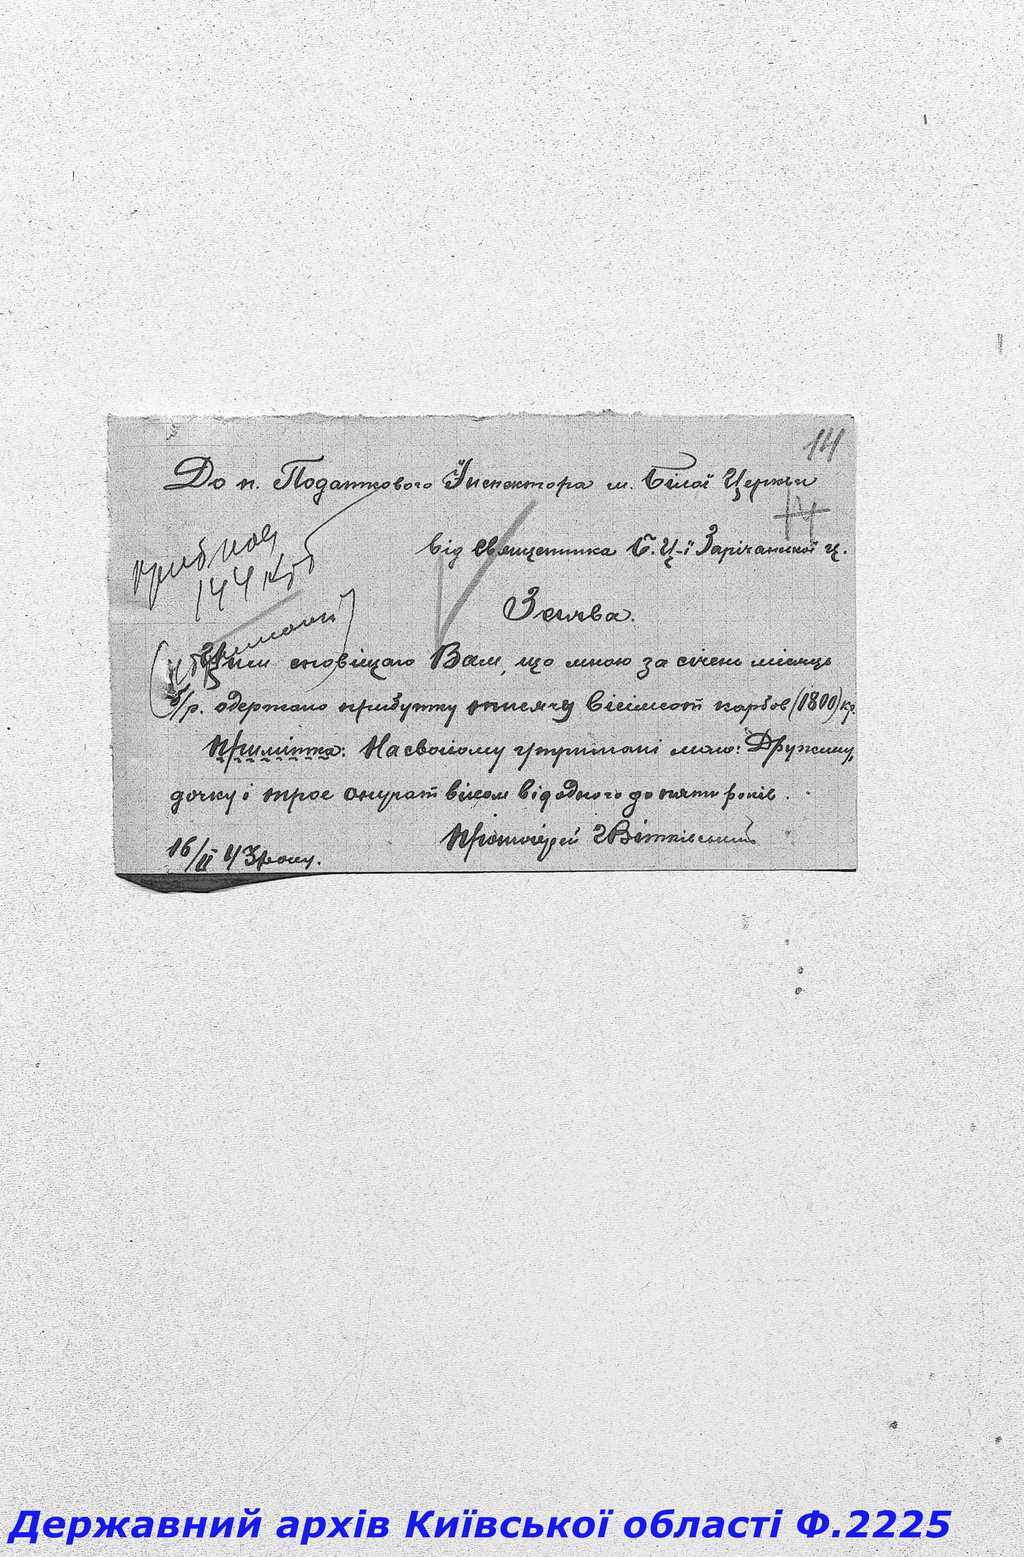 14
До п. Податкового Інспектора м. Білої Церкви
14
від священника Б.Ц-ї Зарічанської ц.
144 крб
Заява.
Цим сповіщаю Вам, що мною за січень місяць
б/р. одержано прибутку тисячу вісімсот карбов (1800) кр.
Примітка: На своїому утримані маю: Дружину,
дочку і троє онучат віком від одного до пяти років.
Протоієрей Вітківський
16/II 43 року.
Державний архів Київської області Ф.2225